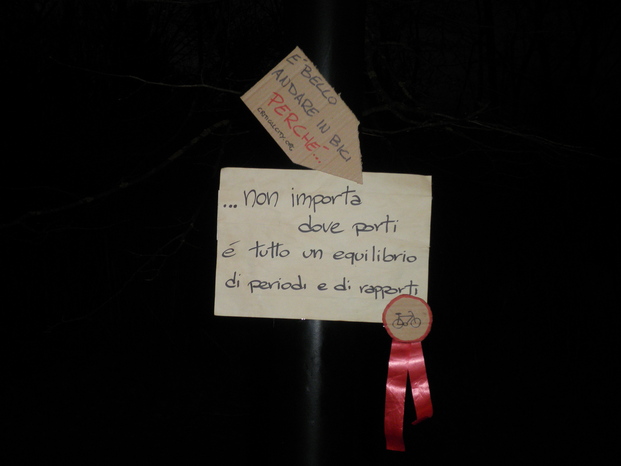 E' BELLO
ANDARE IN BICI
PERCHÉ...
...non importa
dove porti
é tutto un equilibrio
di periodi e di rapporti